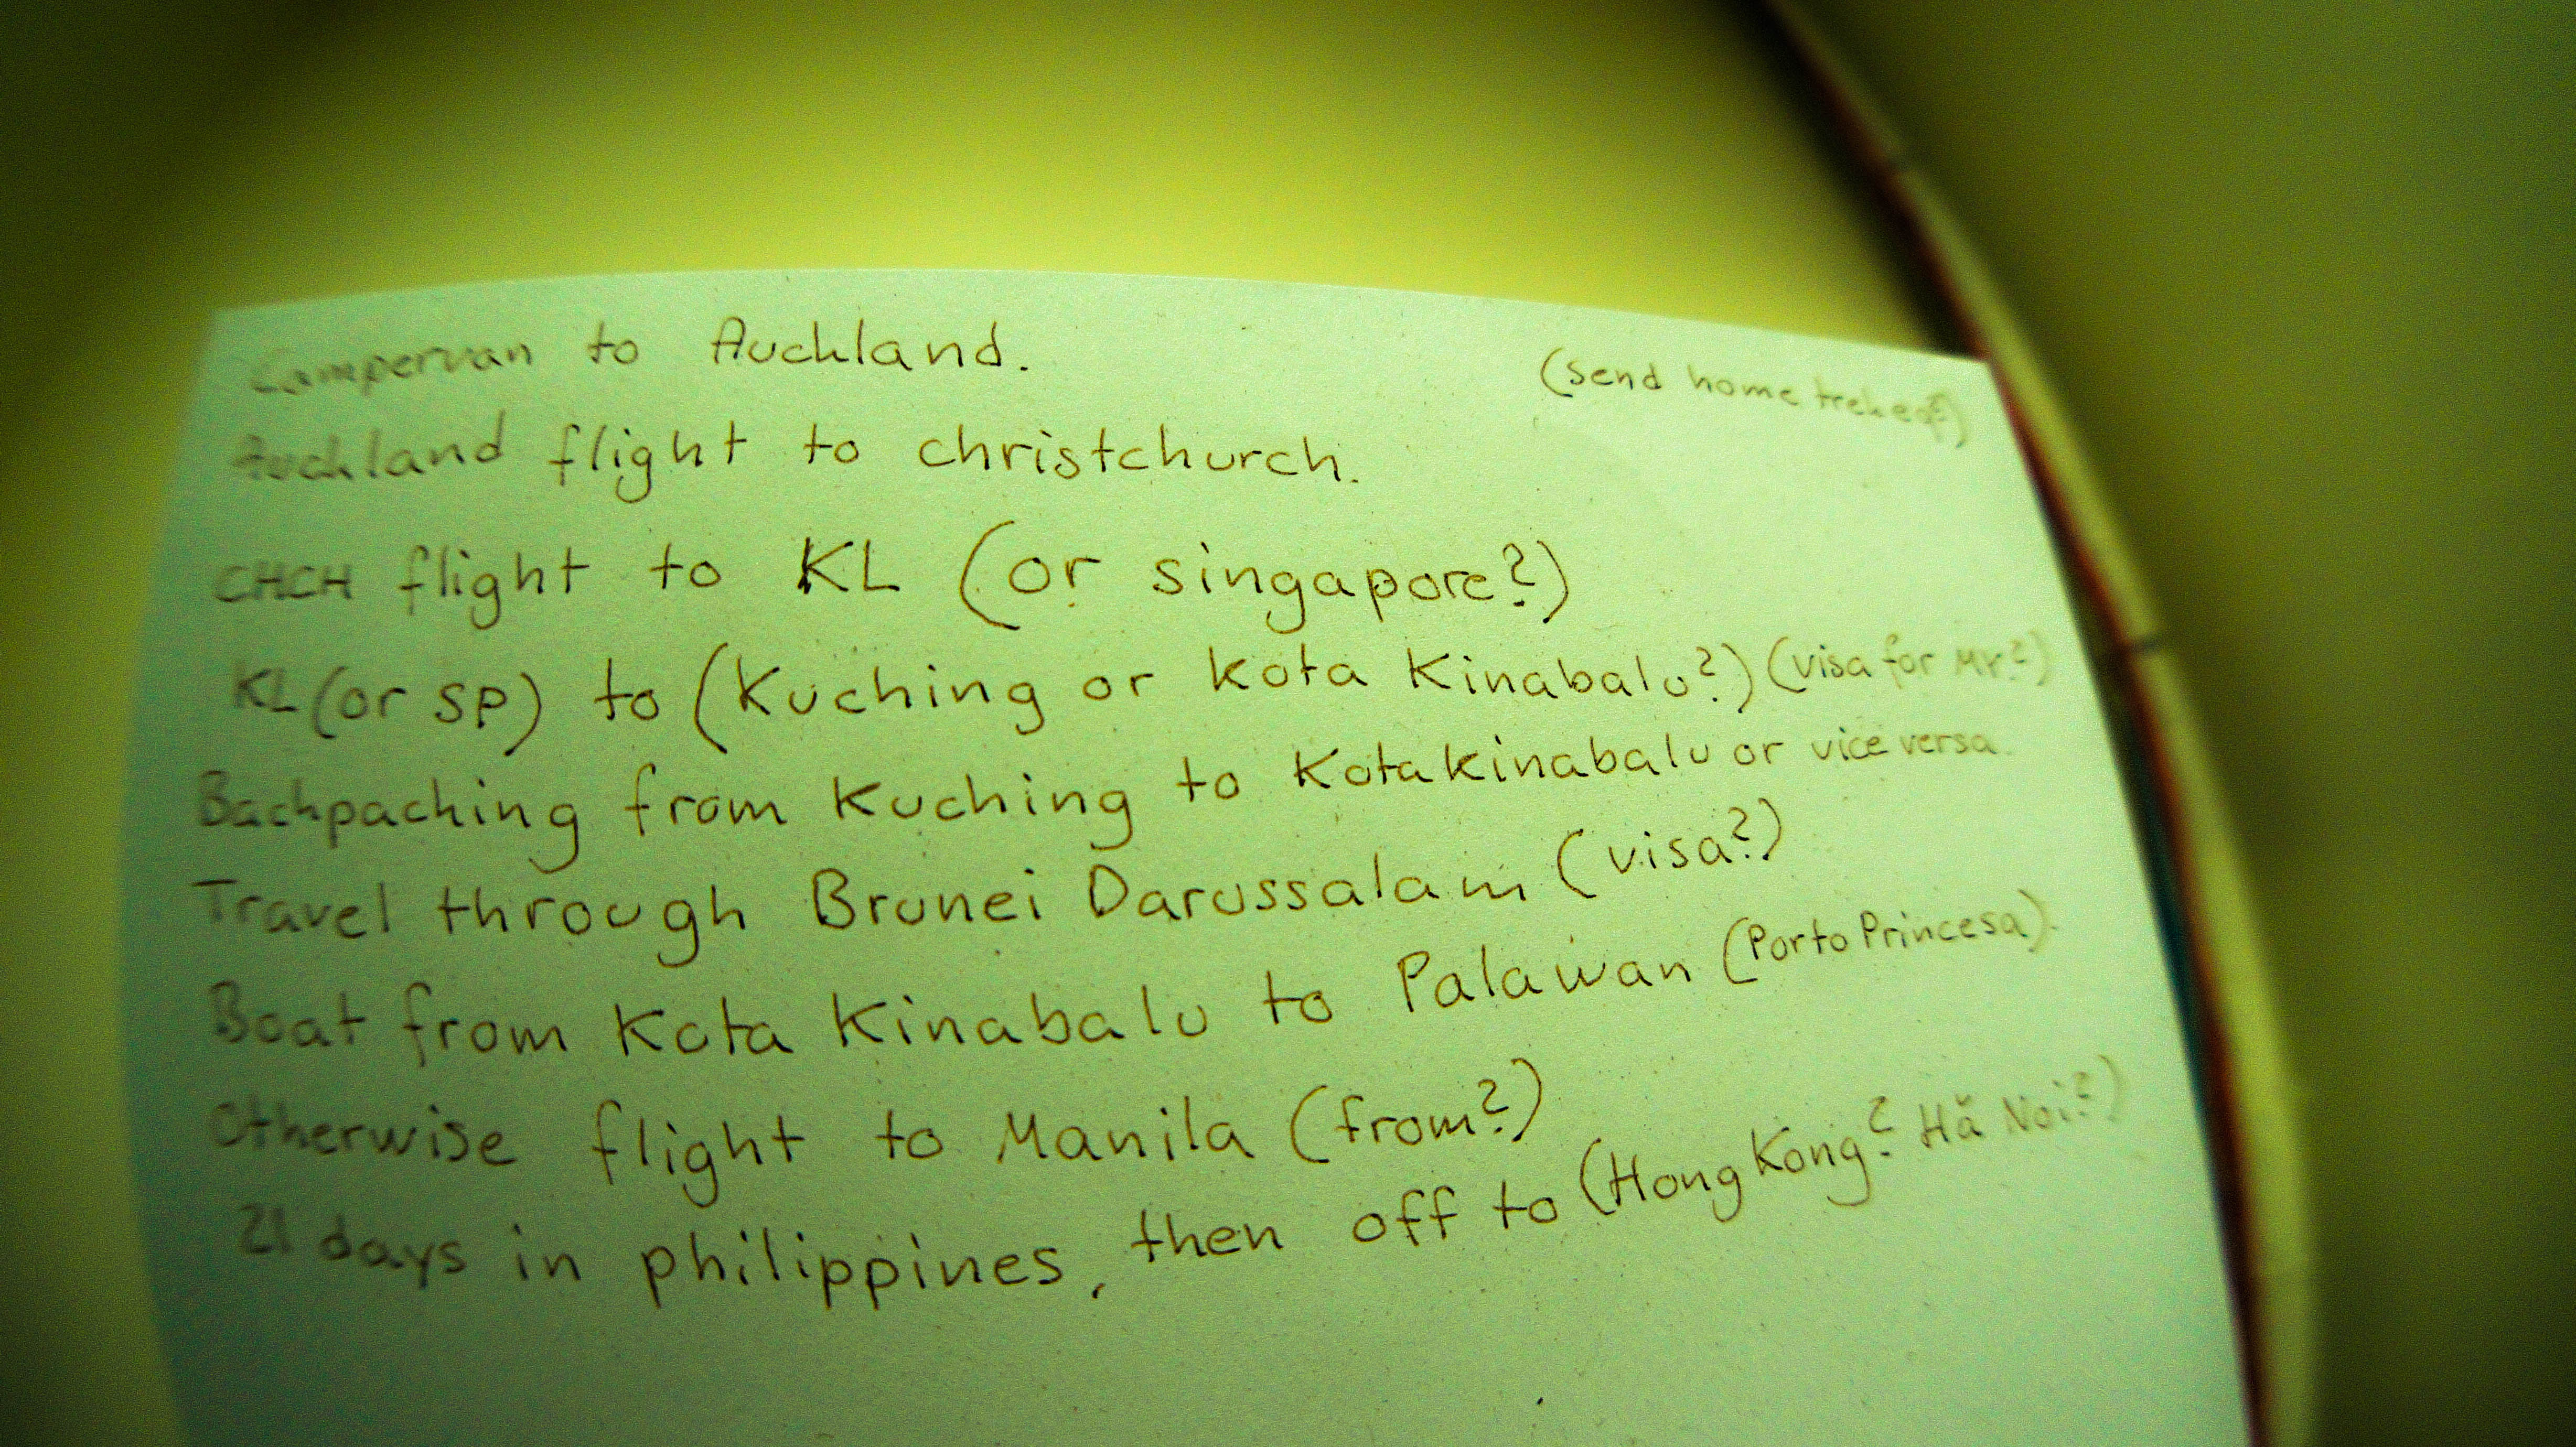 Campervan to Auckland.
(send home
Auckland flight to christchurch.
CHCH flight to KL (or singapore?)
KL (or SP) to (Kuching or Kota Kinabalu?) (visa for MY?)
Backpacking from Kuching to Kota kinabalu or vice versa.
Travel through Brunei Darussalam (visa?)
Boat from Kota Kinabalu to Palawan (Porto Princesa).
Otherwise flight to Manila (from?)
21 days in philippines, then off to (Hong Kong? Hă Noi?)